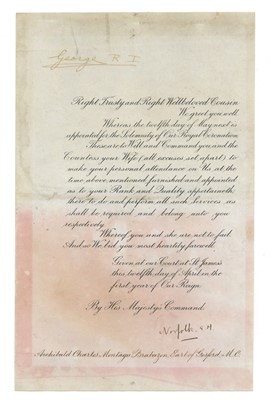 George R I
Right Trusty and Right Wellbeloved Cousin
We greet you well.
Whereas the twelfth day of May next is
appointed for the Solemnity of Our Royal Coronation
These are to Will and Command you and the
Countess your Wife (all excuses set apart) to
make your personal attendance on Us at the
time above mentioned furnished and appointed
as to your Rank and Quality appertaineth,
there to do and perform all such Services as
shall be required and belong unto you
respectively
Whereof you and she are not to fail
And so We bid you most heartily farewell.
Given at our Court at St. James's
this twelfth day of April in the
first year of Our Reign.
By His Majesty's Command.
Norfolk, E M
Archibald Charles Montagu Brabazon, Earl of Gosford M.C.